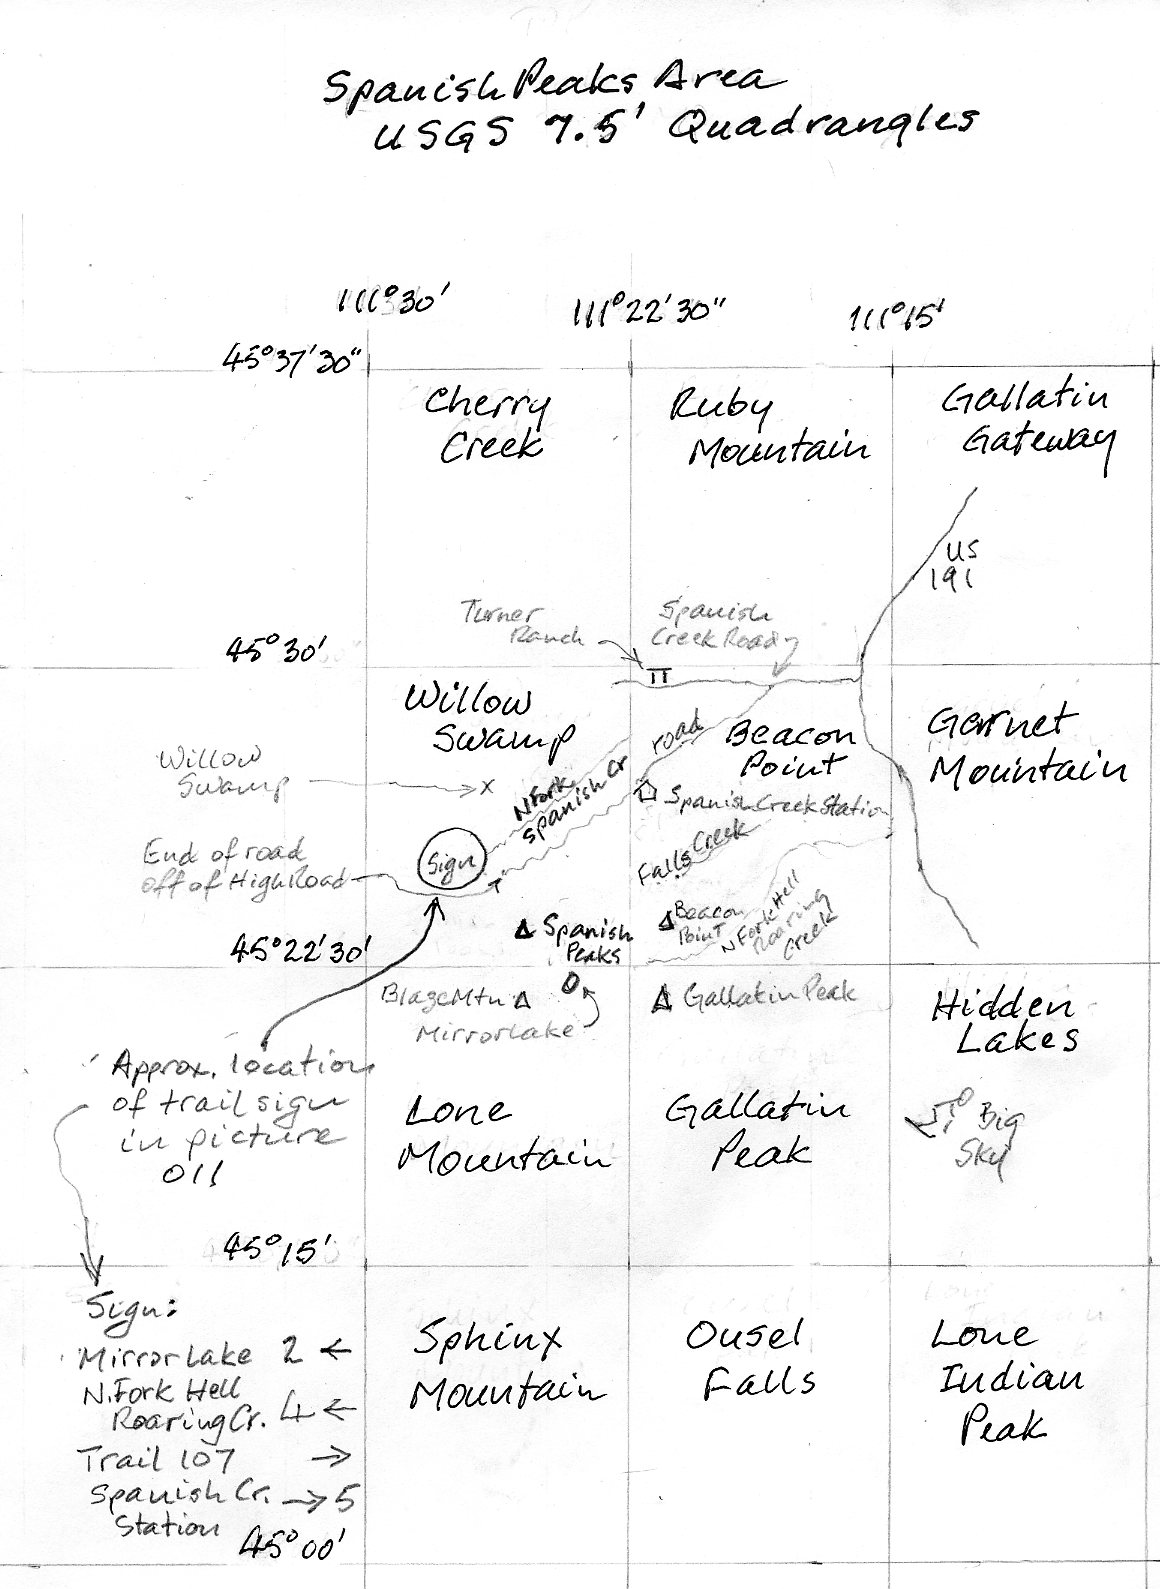 Spanish Peaks Area
USGS 7.5' Quadrangles
111°30'
111°22'30"
111°15'
45°37'30"
Cherry
Creek
Ruby
Mountain
Gallatin
Gateway
US
191
Turner
Ranch
Spanish
Creek Road
45°30'
Willow
Swamp
road
Beacon
Point
Garnet
Mountain
Willow
Swamp
X
N Fork
Spanish Cr
Spanish Creek Station
End of road
off of High Road
Sign
Falls Creek
Beacon
Point
N Fork Hell
Roaring
Creek
45°22'30'
Spanish
Peaks
Blaze Mtn
Mirror Lake
Gallatin Peak
Hidden
Lakes
Approx. location
of trail sign
in picture
011
Lone
Mountain
Gallatin
Peak
Big
Sky
45°15'
Sign:
Mirror Lake 2 ←
N. Fork Hell
Roaring Cr. 4 ←
Trail 107 →
Spanish Cr. → 5
Station
Sphinx
Mountain
Ousel
Falls
Lone
Indian
Peak
45°00'